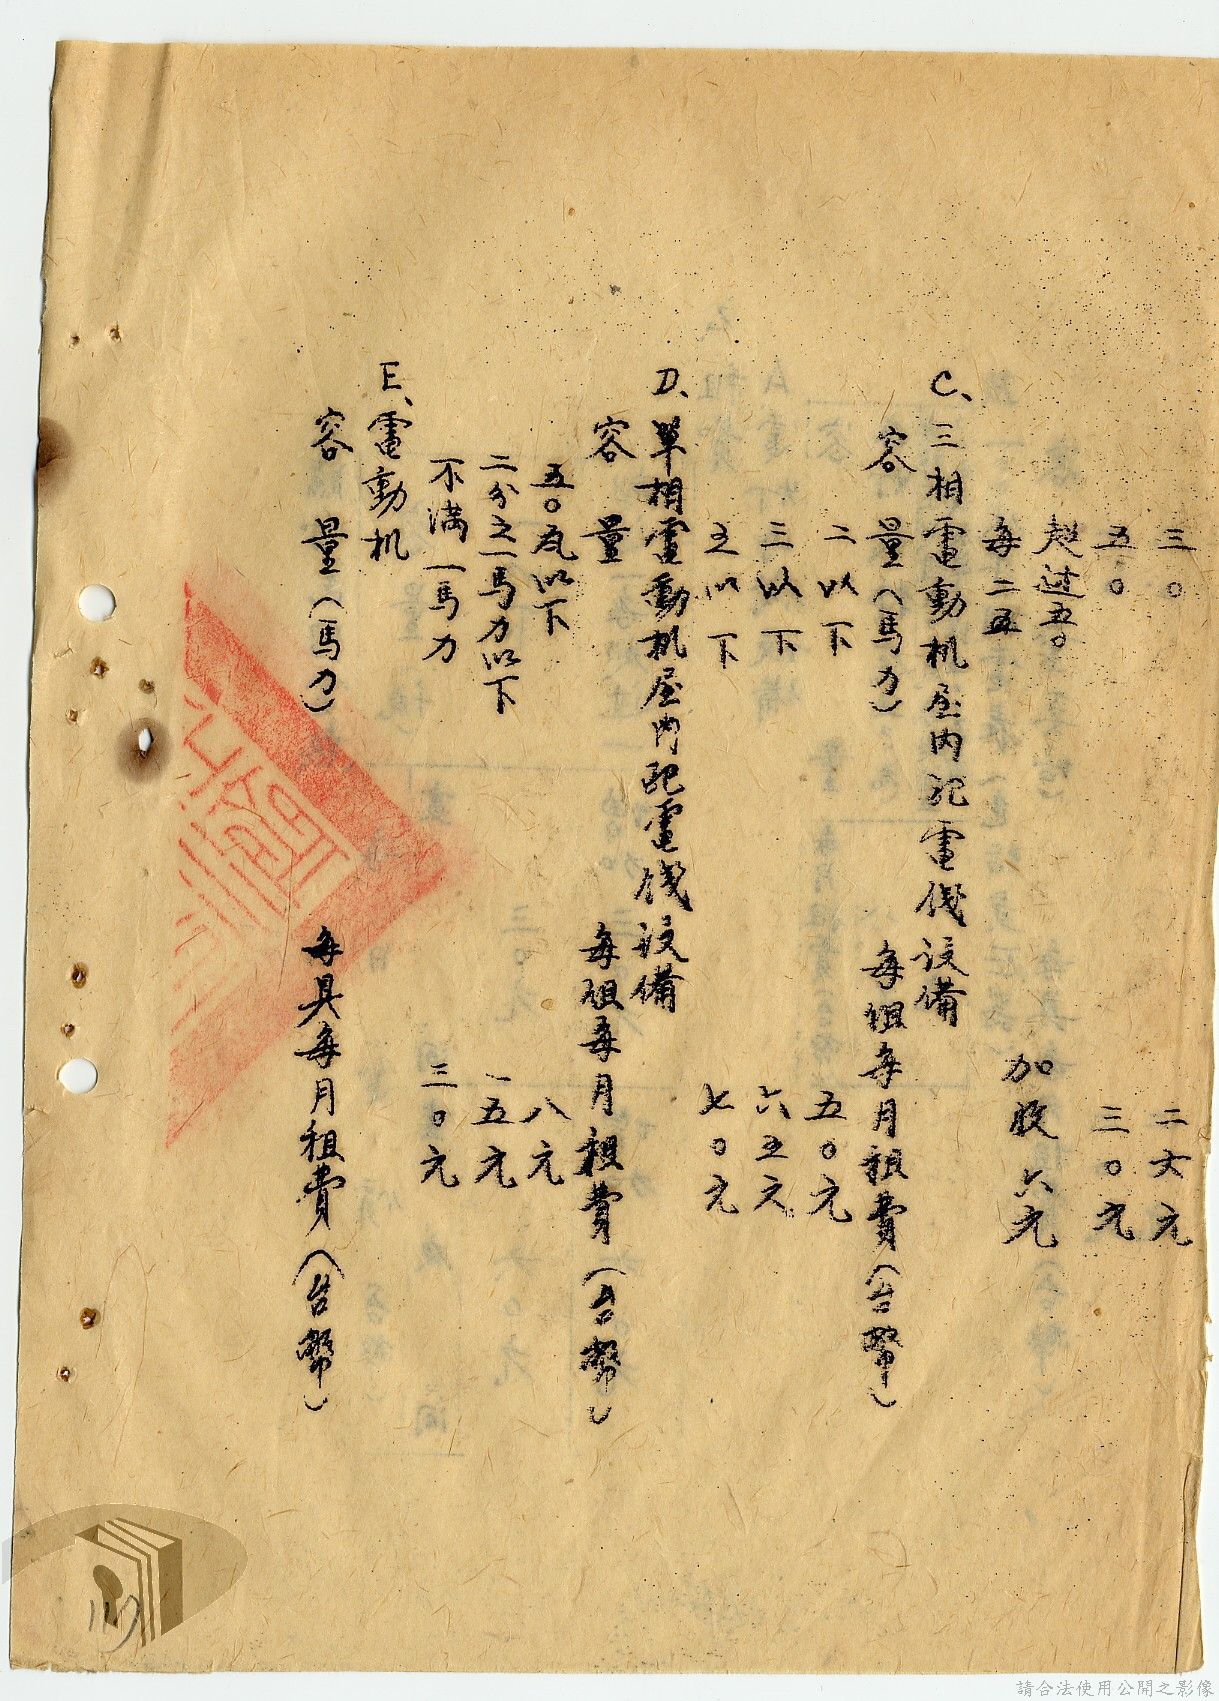 三〇　二六元
五〇　三〇元
超过五〇
每二五　加收六元
C、三相電動机屋內配電綫設備
容量（馬力）　每組每月租費（台幣）
二以下　五〇元
三以下　六五元
五以下　七〇元
D、單相電動机屋內配電綫設備
容量　每組每月租費（台幣）
五〇瓦以下　八元
二分之一馬力以下　一五元
不滿一馬力　三〇元
E、電動机
容量（馬力）　每具每月租費（台幣）
請合法使用公開之影像